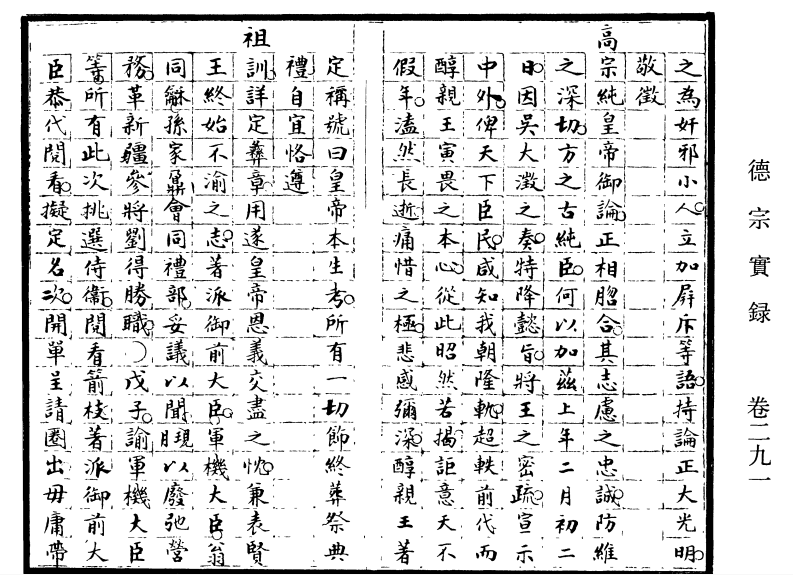 德宗實録 卷二九一
之為奸邪小人立加屛斥等語持論正大光明
敬徵
高宗純皇帝御論正相脗合其志慮之忠誠防維
之深切方之古純臣何以加茲上年二月初二
日因吳大澂之奏特降懿旨將王之密疏宣示
中外俾天下臣民咸知我朝隆軌超軼前代而
醇親王寅畏之本心從此昭然若揭詎意天不
假年溘然長逝痛惜之極悲感彌深醇親王著
定稱號曰皇帝本生考所有一切飾終葬祭典
禮自宜恪遵
祖訓詳定彝章用遂皇帝恩義交盡之忱兼表賢
王終始不渝之志著派御前大臣軍機大臣翁
同龢孫家鼐會同禮部妥議以聞現以廢弛營
務革新疆參將劉得勝職〇戊子諭軍機大臣
等所有此次挑選侍衛閱看箭枝著派御前大
臣恭代閱看擬定名次開單呈請圈出毋庸帶